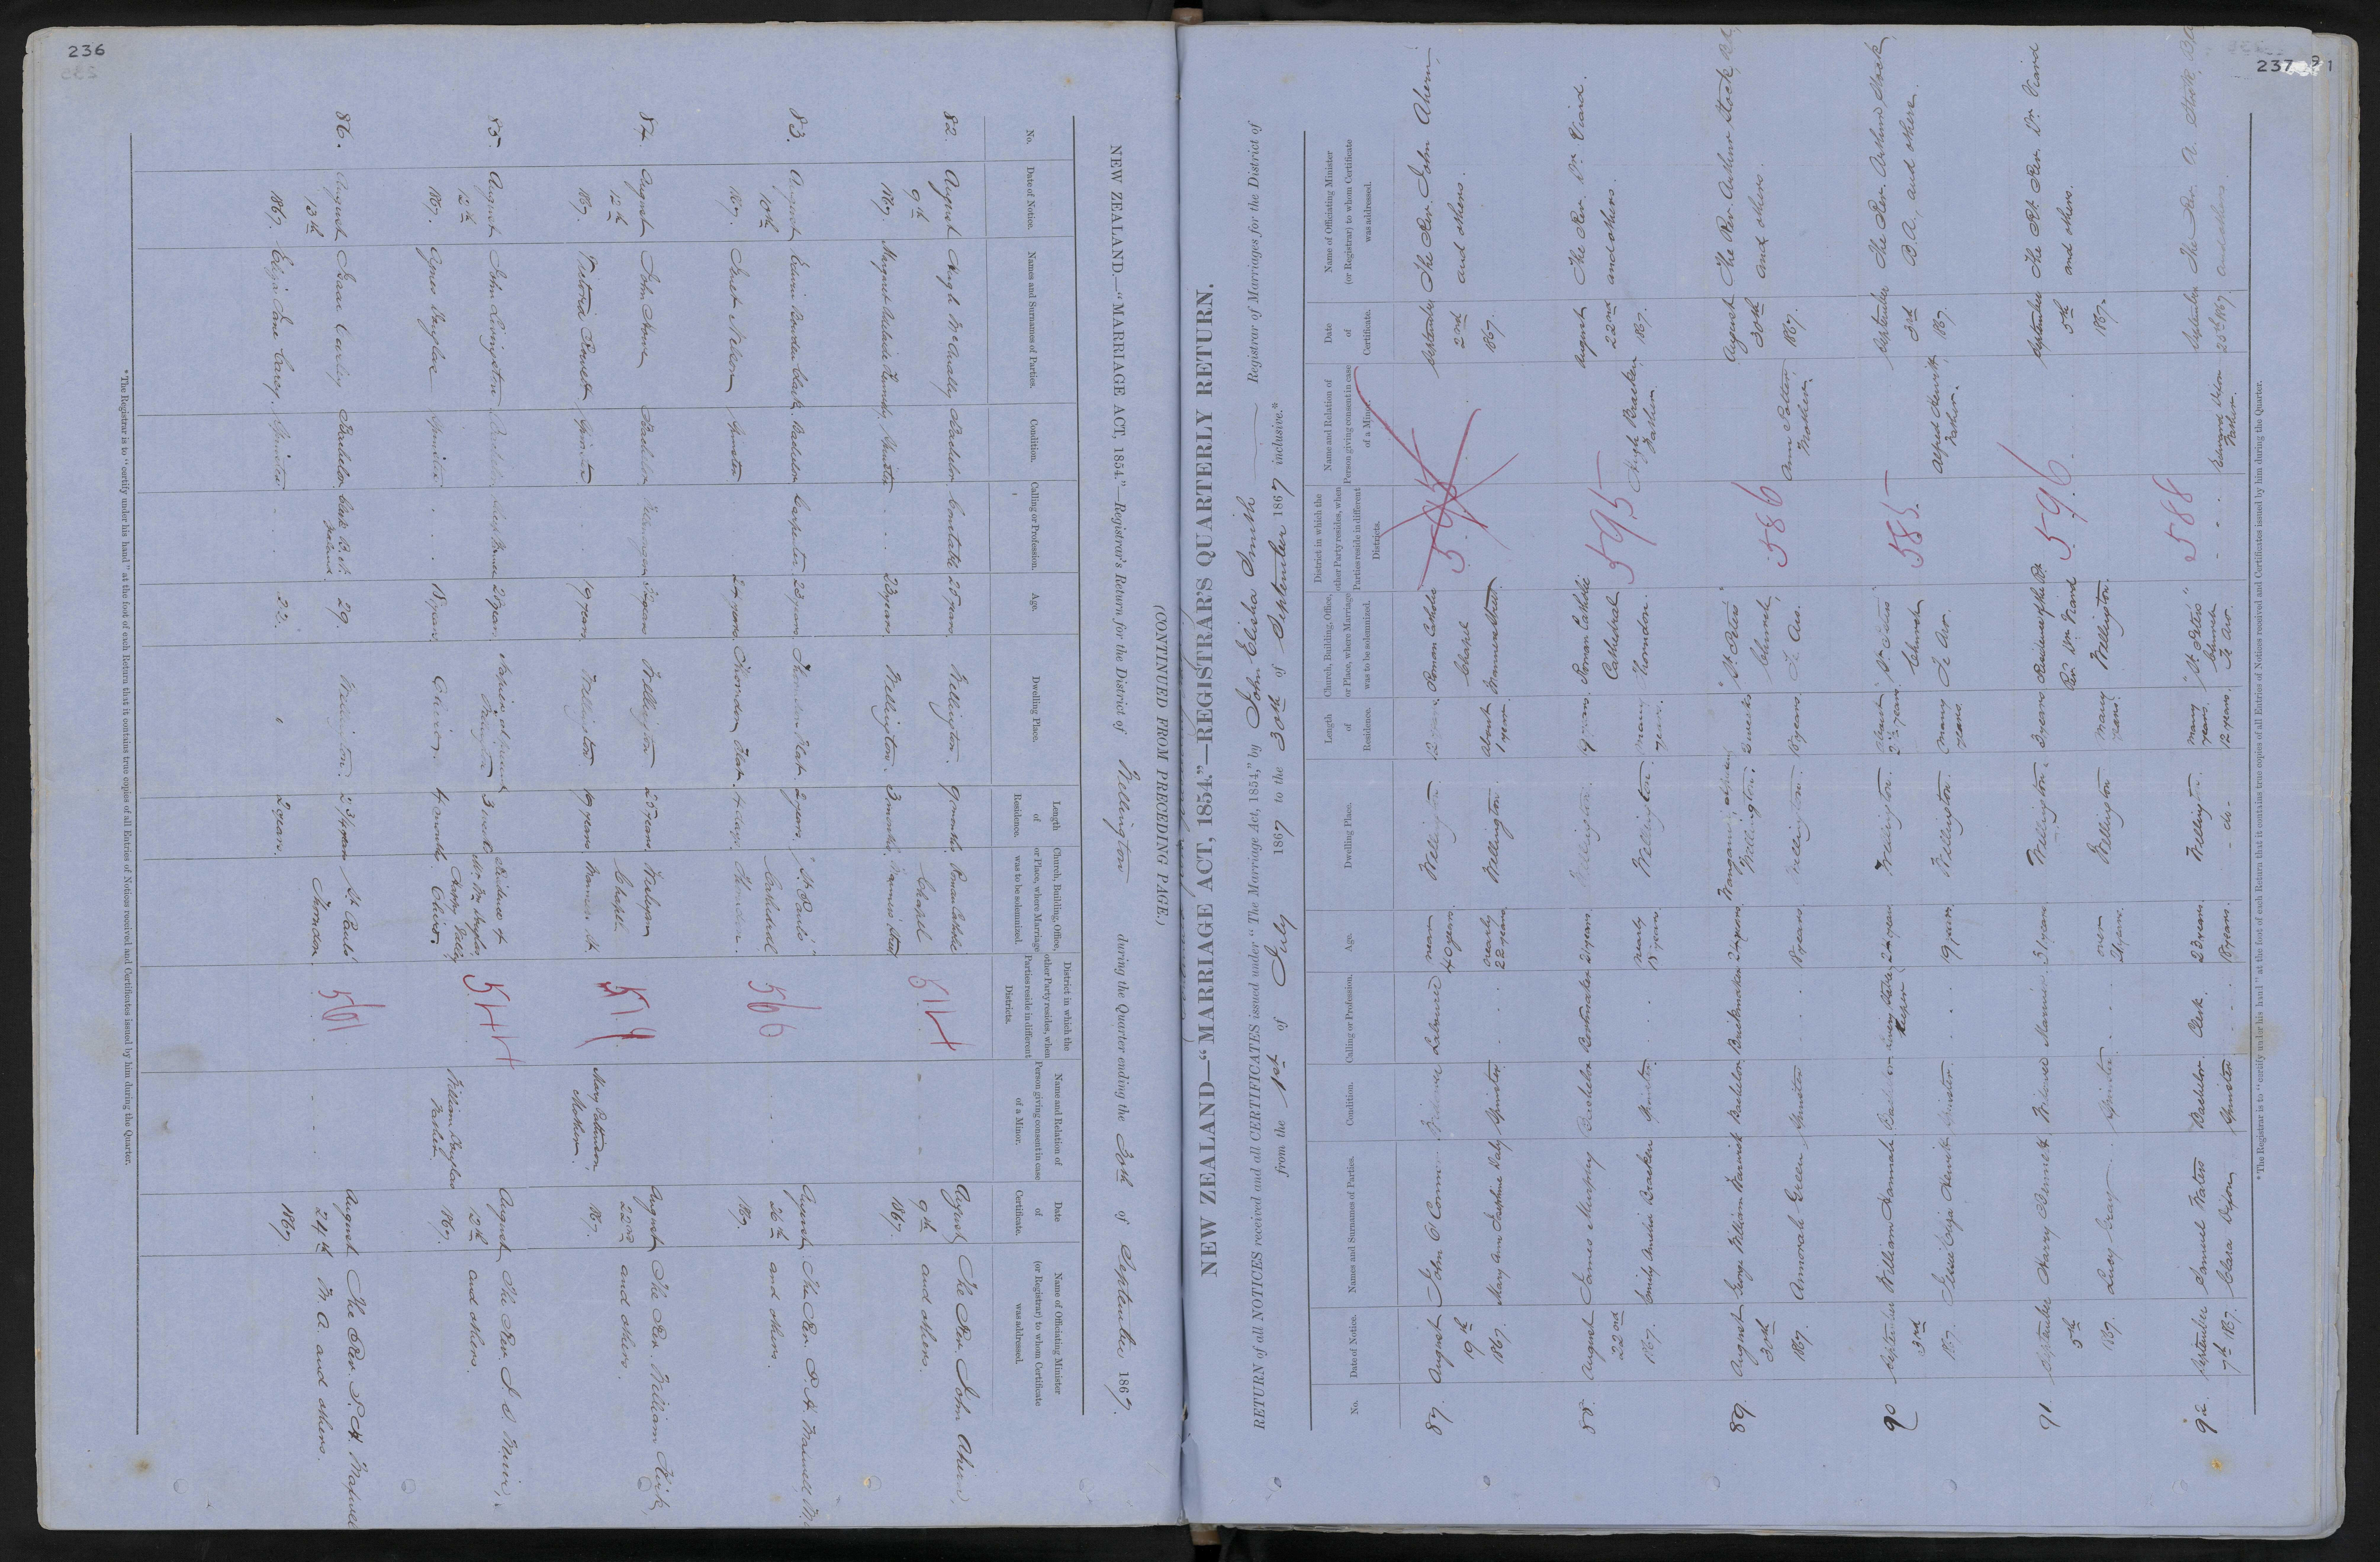 236
NEW ZEALAND.—"MARRIAGE ACT, 1854."—Registrar's Return for the District of Wellington during the Quarter ending the 30th of September 1867.
No. Date of Notice. Names and Surnames of Parties. Condition. Calling or Profession. Age. Dwelling Place. Length of Residence. Church, Building, Office, or Place, where Marriage was to be solemnized. District in which the other Party resides, when Parties reside in different Districts. Name and Relation of Person giving consent in case of a Minor. Date of Certificate. Name of Officiating Minister (or Registrar) to whom Certificate was addressed.
82. August Hugh McAnally Bachelor Constable 25 years Wellington. 9 months Roman Catholic 514 August The Rev. John Ahern,
9th Chapel 9th and others.
1867. Margaret Adelaide Spinster 23 years Wellington. 3 months Manners Street 1867.
83. August Edwin Bowden Clark. Bachelor Carpenter 23 years Thorndon Flat 2 years "St. Paul's" 566 August The Rev. P. H. Maxwell, M.
10th Cathedral 26th and others.
1867. Janet Nelson Spinster 24 years Thorndon Flat 4 days. Thorndon. 1867.
84. August John Howe Bachelor Wellington 25 years Wesleyan 519 August The Rev. William Kirk,
12th Chapel 22nd and others.
1867. Victoria Spinster 19 years Wellington 19 years Manners St. Mary Patterson, Mother. 1867.
85. August John Livingston Bachelor 28 years Napier at present Wellington 3 weeks Residence of 544 August The Rev.
12th Mr. Wm. Douglas, 12th and others.
1867. Agnes Douglas Spinster 18 years 4 months William Douglas Father. 1867.
86. August Isaac Bachelor Clerk B. N. Zealand 29. Wellington. 2 3/4 years St. Paul's 561 August The Rev. P. H. Maxwell
13th Thorndon. 24th M. A. and others.
1867. Eliza Jane Carey. Spinster 22. " 2 years. 1867
*The Registrar is to "certify under his hand" at the foot of each Return that it contains true copies of all Entries of Notices received and Certificates issued by him during the Quarter.
(CONTINUED FROM PRECEDING PAGE.)
237
NEW ZEALAND—"MARRIAGE ACT, 1854."—REGISTRAR'S QUARTERLY RETURN.
RETURN of all NOTICES received and all CERTIFICATES issued under "The Marriage Act, 1854," by John Elisha Smith Registrar of Marriages for the District of
from the 1st of July 1867 to the 30th of September 1867 inclusive.*
No. Date of Notice. Names and Surnames of Parties. Condition. Calling or Profession. Age. Dwelling Place. Length of Residence. Church, Building, Office, or Place, where Marriage was to be solemnized. District in which the other Party resides, when Parties reside in different Districts. Name and Relation of Person giving consent in case of a Minor. Date of Certificate. Name of Officiating Minister (or Registrar) to whom Certificate was addressed.
87. August John O'Connor Widower Labourer near 40 years. Wellington 12 years. Roman Catholic 595 September The Rev. John Ahern,
19th Chapel 2nd and others.
1867. Mary Ann Josephine Daly Spinster nearly 22 years Wellington. about 1 year Manners Street. 1867.
88. August James Murphy Bachelor Bootmaker 21 years. Wellington. 9 years. Roman Catholic 595 August The Rev. Dr. Viard.
22nd Cathedral 22nd and others.
1867. Emily Amelia Bracken Spinster. nearly 18 years. Wellington. many years. Thorndon. Hugh Bracken, Father. 1867.
89. August George William Warwick Bachelor Brickmaker 24 years Wanganui, at present Wellington. 3 weeks "St. Peters" 586 August The Rev. Arthur Stock, B.A,
30th Church, 30th and others.
1867. Annorah Green Spinster 18 years. Wellington. 18 years. Te Aro. Ann Mother. 1867.
90 September William Hannah Bachelor Livery Stable Keeper 24 years Wellington. about 2 1/2 years "St. Peters" 585 September The Rev. Arthur Stock,
3rd Church 3rd B.A., and others.
1867. Jessie Eliza Hewitt Spinster 19 years. Wellington. many years. Te Aro. Alfred Hewitt, Father. 1867.
91. September Harry Bennett Widower Mariner. 31 years Wellington. 3 years Residence of the Rt. 596. September The Rt. Rev. Dr. Viard
5th Rev. Dr. Viard 5th and others.
1867. Lucy Gray Spinster. over 21 years. Wellington many years. Wellington. 1867.
92. September Samuel Waters Bachelor. Clerk. 23 years. Wellington. many years. "St. Peters" 588 September The Rev. A. Stock, B.A
7th 1867. Clara Dixon Spinster 18 years. - do - 12 years. Church Te Aro. Edward Dixon Father. 25th 1867. and others.
*The Registrar is to "certify under his hand" at the foot of each Return that it contains true copies of all Entries of Notices received and Certificates issued by him during the Quarter.